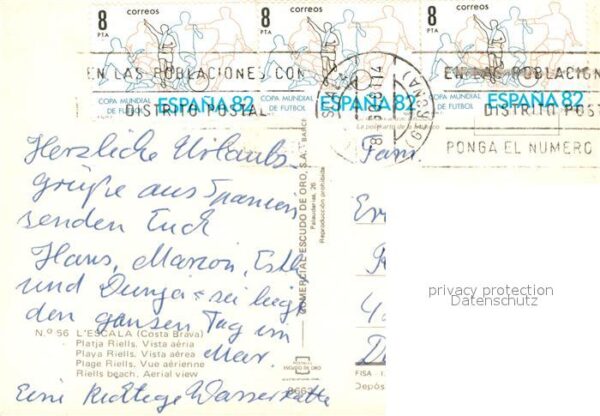 8 correos
PTA
8 correos
PTA
8 correos
PTA
EN LAS POBLACIONES CON
EN LAS POBLACION
COPA MUNDIAL
DE FUTBOL
ESPAÑA 82
COPA MUNDIAL
DE FUTBOL
ESPAÑA 82
COPA MUNDIAL
DE FUTBOL
ESPAÑA 82
DISTRITO POSTAL
DISTRITO POS
PONGA EL NUMERO
Herzliche Urlaubs
grüße aus Spanien
senden Euch
Hans, Marion,
und Dunja - sie liegt
den ganzen Tag im
Meer.
Eine richtige Wasserratte
N.º 56 L'ESCALA (Costa Brava)
Platja Riells, Vista aèria
Playa Riells, Vista aérea
Plage Riells, Vue aérienne
Riells beach, Aerial view
COMERCIAL ESCUDO DE ORO, S.A. - BARCE
Palaudarias, 26
Reproducción prohibida
ESCUDO DE ORO
Fam
FISA - I.
Depós
privacy protection
Datenschutz